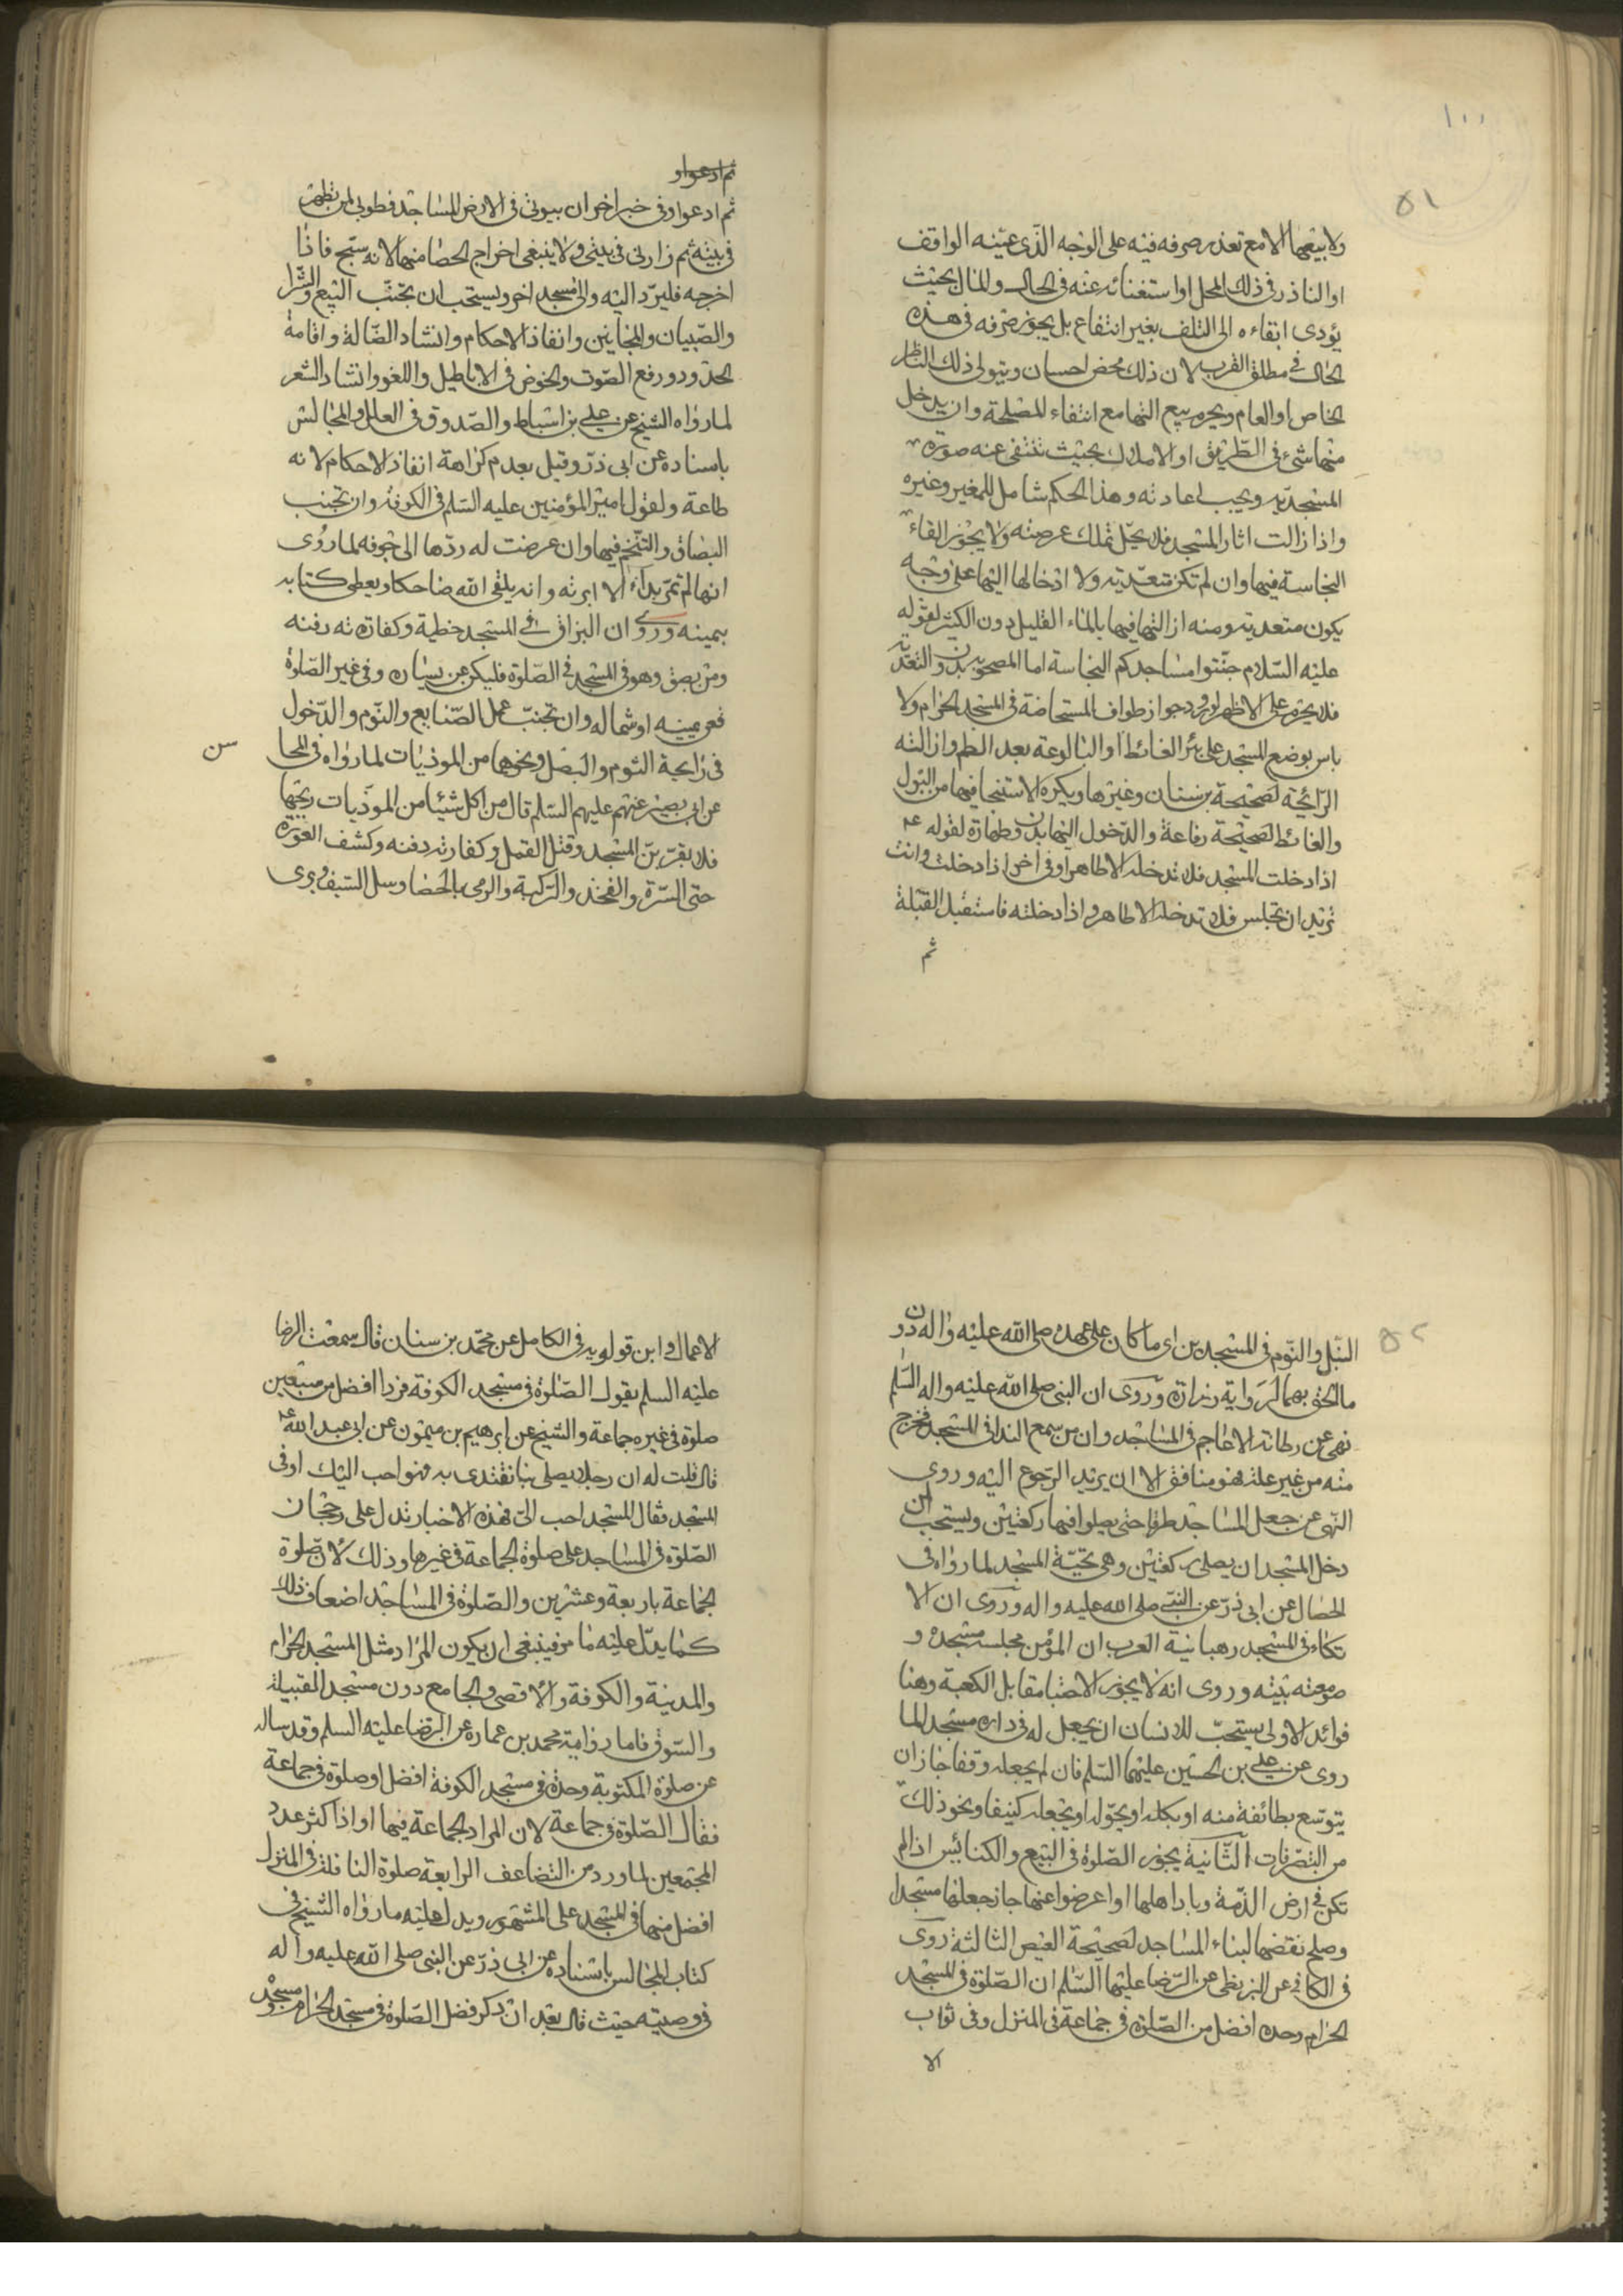 ١٠٠
٥١
ولا بيعها الا مع تعذر صرفه فيه على الوجه الذى عينه الواقف
او الناذر فى ذلك المحل او استغنائه عنه فى الحال والمال بحيث
يؤدى ابقاءه الى التلف بغير انتفاع بل يجوز صرفه فى هذه
الحال فى مطلق القرب لان ذلك محض احسان ويتولى ذلك الناظر
الخاص او العام ويحرم بيع التها مع انتفاء المصلحة وان يدخل
منها شئ فى الطريق او الاملاك بحيث تنتفى عنه صورة
المسجديه ويجب اعادته وهذا الحكم شامل للمغير وغيره
واذا زالت اثار المسجد فلا يحل تملك عرصته ولا يجوز القاء
النجاسة فيها وان لم تكن متعدية ولا ادخالها اليها على وجه
يكون متعدية ومنه ازالتها فيها بالماء القليل دون الكثير لقوله
عليه السلام جنبوا مساجدكم النجاسة اما المصحوبه بدون التعديه
فلا يحرم على الاظهر لورود جواز طواف المستحاضة فى المسجد الحرام ولا
باس بوضع المسجد على بئر الغائط او البالوعة بعد الطم وازالته
الرائحة لصحيحة بن سنان وغيرها ويكره الاستنجا فيها من البول
والغائط لصحيحة رفاعة والدخول اليها بدون طهارة لقوله ع
اذا دخلت المسجد فلا تدخله الا طاهرا وفى اخر اذا دخلت وانت
تريد ان تجلس فلا تدخله الا طاهر واذا دخلته فاستقبل القبلة
ثم
ثم ادعوا و
ثم ادعوا وفى خبر اخر ان بيوتى فى الارض المساجد فطوبى لمن تطهر
فى بيته ثم زارنى فى بيتى ولا ينبغى اخراج الحصا منها لانه سبح فاذا
اخرجه فليرد اليه والى مسجد اخر ويستحب ان تجنب البيع والشرا
والصبيان والمجانين وانفاذ الاحكام وانشاد الضالة واقامة
الحدود ورفع الصوت والخوض فى الاباطيل واللغو وانشاد الشعر
لما رواه الشيخ عن على بن اسباط والصدوق فى العلل والمجالس
باسناده عن ابى ذر وقيل بعدم كراهة انفاذ الاحكام لانه
طاعة ولقول امير المؤمنين عليه السلم فى الكوفة وان تجنب
البصاق والتنخم فيها وان عرضت له ردها الى جوفه لما روى
انها لم تمر بداء الا ابرته وانه يلقى الله ضاحكا ويعطى كتابه
بيمينه وروى ان البزاق فى المسجد خطية وكفارته دفنه
ومن بصق وهو فى المسجد فى الصلوة فليكن عن يساره وفى غير الصلوة
فعن يمينه او شماله وان تجنب عمل الصنايع والنوم والدخول
فى رايحة الثوم والبصل ونحوها من الموذيات لما رواه فى المحا
سن
عن ابى بصير عنهم عليهم السلم قال من اكل شيئا من الموذيات ريحها
فلا يقربن المسجد وقتل القمل وكفارته دفنه وكشف العورة
حتى السرة والفخذ والركبة والرمى بالحصا وسل السيف وبرى
٥٢
النبل والنوم فى المسجدين اى ما كان على عهده صلى الله عليه واله دون
ما الحق بهما لرواية زرارة وروى ان النبى صلى الله عليه واله السلم
نهى عن رطانة الاعاجم فى المساجد وان من سمع الندا فى المسجد فخرج
منه من غير علة فهو منافق الا ان يريد الرجوع اليه وروى
النهى عن جعل المساجد طرقا حتى يصلوا فيها ركعتين ويستحب لمن
دخل المسجد ان يصلى ركعتين وهى تحية المسجد لما رواه فى
الخصال عن ابى ذر عن النبى صلى الله عليه واله وروى ان الا
تكاء فى المسجد رهبانية العرب ان المؤمن مجلسه مسجده و
صومعته بيته وروى انه لا يجوز الاحتبا مقابل الكعبة وهنا
فوائد الاولى يستحب للانسان ان يجعل له فى داره مسجد لما
روى عن على بن الحسين عليهما السلم فان لم يجعله وقفا جاز ان
يتوسع بطائفة منه او بكله او يحوله او يجعله كنيفا ونحو ذلك
من التصرفات الثانية يجوز الصلوة فى البيع والكنايس اذا لم
تكن فى ارض الذمة وباد اهلها او اعرضوا عنها جاز جعلها مسجدا
وصلح نقضها لبناء المساجد لصحيحة العيص الثالثة روى
فى الكافى عن البزنطى عن الرضا عليهما السلم ان الصلوة فى المسجد
الحرام وحده افضل من الصلوة فى جماعة فى المنزل وفى ثواب
الا
الاعمال وابن قولويه فى الكامل عن محمد بن سنان قال سمعت الرضا
عليه السلم يقول الصلوة فى مسجد الكوفة فردا افضل من سبعين
صلوة فى غيره جماعة والشيخ عن ابرهيم بن ميمون عن ابى عبد الله ع
قال قلت له ان رجلا يصلى بنا نقتدى به فهو احب اليك او فى
المسجد فقال المسجد احب الى فهذه الاخبار تدل على رجحان
الصلوة فى المساجد على صلوة الجماعة فى غيرها وذلك لان صلوة
الجماعة باربعة وعشرين والصلوة فى المساجد اضعاف ذلك
كما يدل عليه ما مر فينبغى ان يكون المراد مثل المسجد الحرام
والمدينة والكوفة والاقصى والجامع دون مسجد القبيلة
والسوق فاما رواية محمد بن عماره عن الرضا عليه السلم وقد ساله
عن صلوة المكتوبة وحده فى مسجد الكوفة افضل او صلوة فى جماعة
فقال الصلوة فى جماعة لان المراد الجماعة فيها او اذا كثر عدد
المجتمعين لما ورد من التضاعف الرابعة صلوة النافلة فى المنزل
افضل منها فى المسجد على المشهور ويدل عليه ما رواه الشيخ فى
كتاب المجالس باسناده عن ابى ذر عن النبى صلى الله عليه واله
فى وصيته حيث قال بعد ان ذكر فضل الصلوة فى مسجد الحرام ومسجده